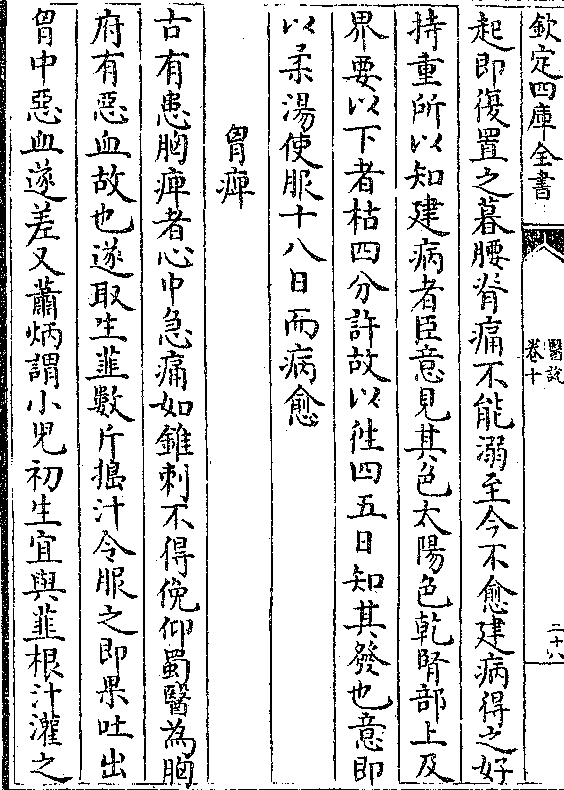 欽定四庫全書
醫說
卷十
二十八
起即復置之暮腰脊痛不能溺至今不愈建病得之好
持重所以知建病者臣意見其色太陽色乾腎部上及
界要以下者枯四分許故以徃四五日知其發也意即
以柔湯使服十八日而病愈
胷痺
古有患胸痺者心中急痛如錐刺不得俛仰蜀醫為胸
府有惡血故也遂取生韮數斤搗汁令服之即果吐出
胷中惡血遂差又蕭炳謂小兒初生宜與韮根汁灌之